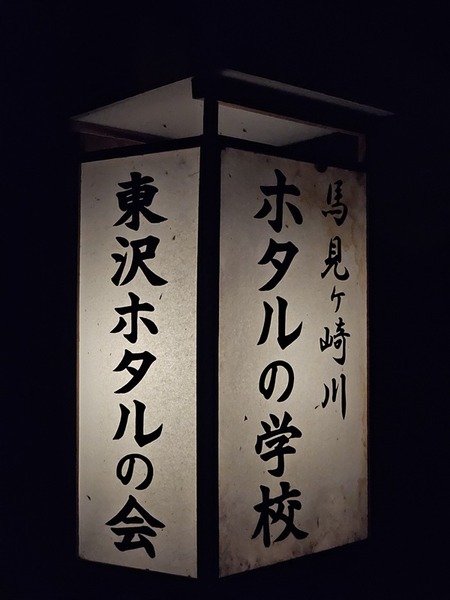 馬見ヶ崎川
ホタルの学校
東沢ホタルの会